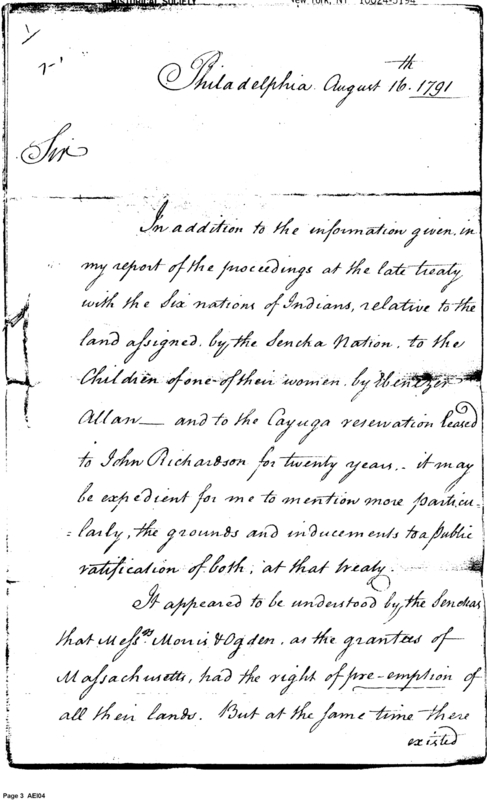 HISTORICAL SOCIETY New York, NY 10024-5194
Philadelphia August 16.th 1791
Sir
In addition to the information given in
my report of the proceedings at the late treaty
with the Six nations of Indians, relative to the
land assigned by the Seneka Nation, to the
Children of one of their women by Ebenezer
Allan — and to the Cayuga reservation leased
to John Richardson for twenty years,. it may
be expedient for me to mention more particu-
-larly, the grounds and inducements to a public
ratification of both, at that treaty.
It appeared to be understood by the Senekas
that Messrs. Morris & Ogden, as the grantees of
Massachusetts, had the right of pre-emption of
all their lands. But at the same time there
existed
Page 3 AEI04